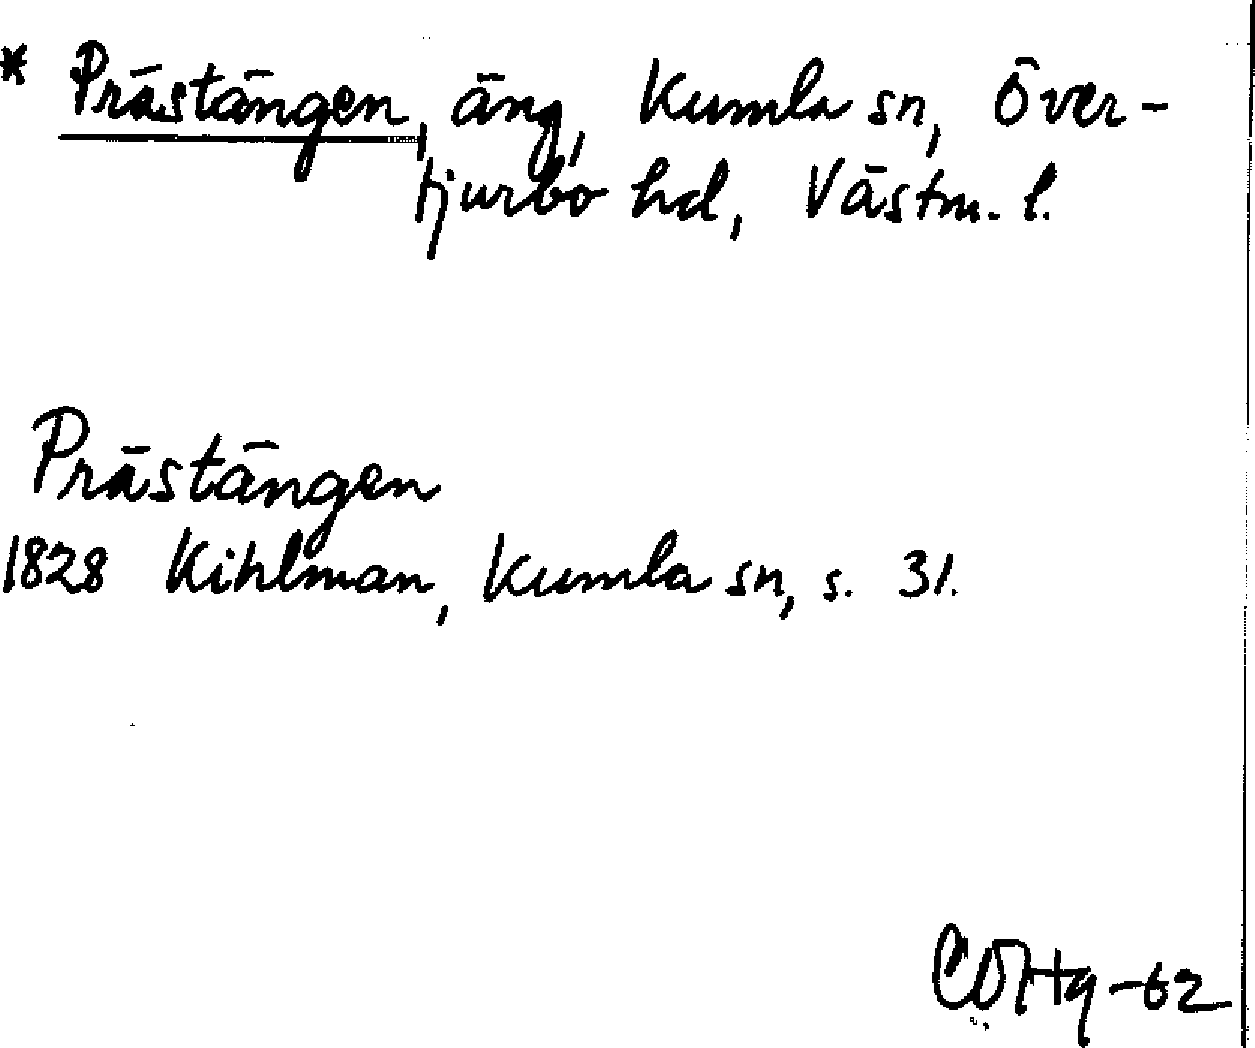 * Prästängen, äng, Kumla sn, Över-
tjurbo hd, Västm. l.
Prästängen
1828 Kihlman, Kumla sn, s. 31.
-62